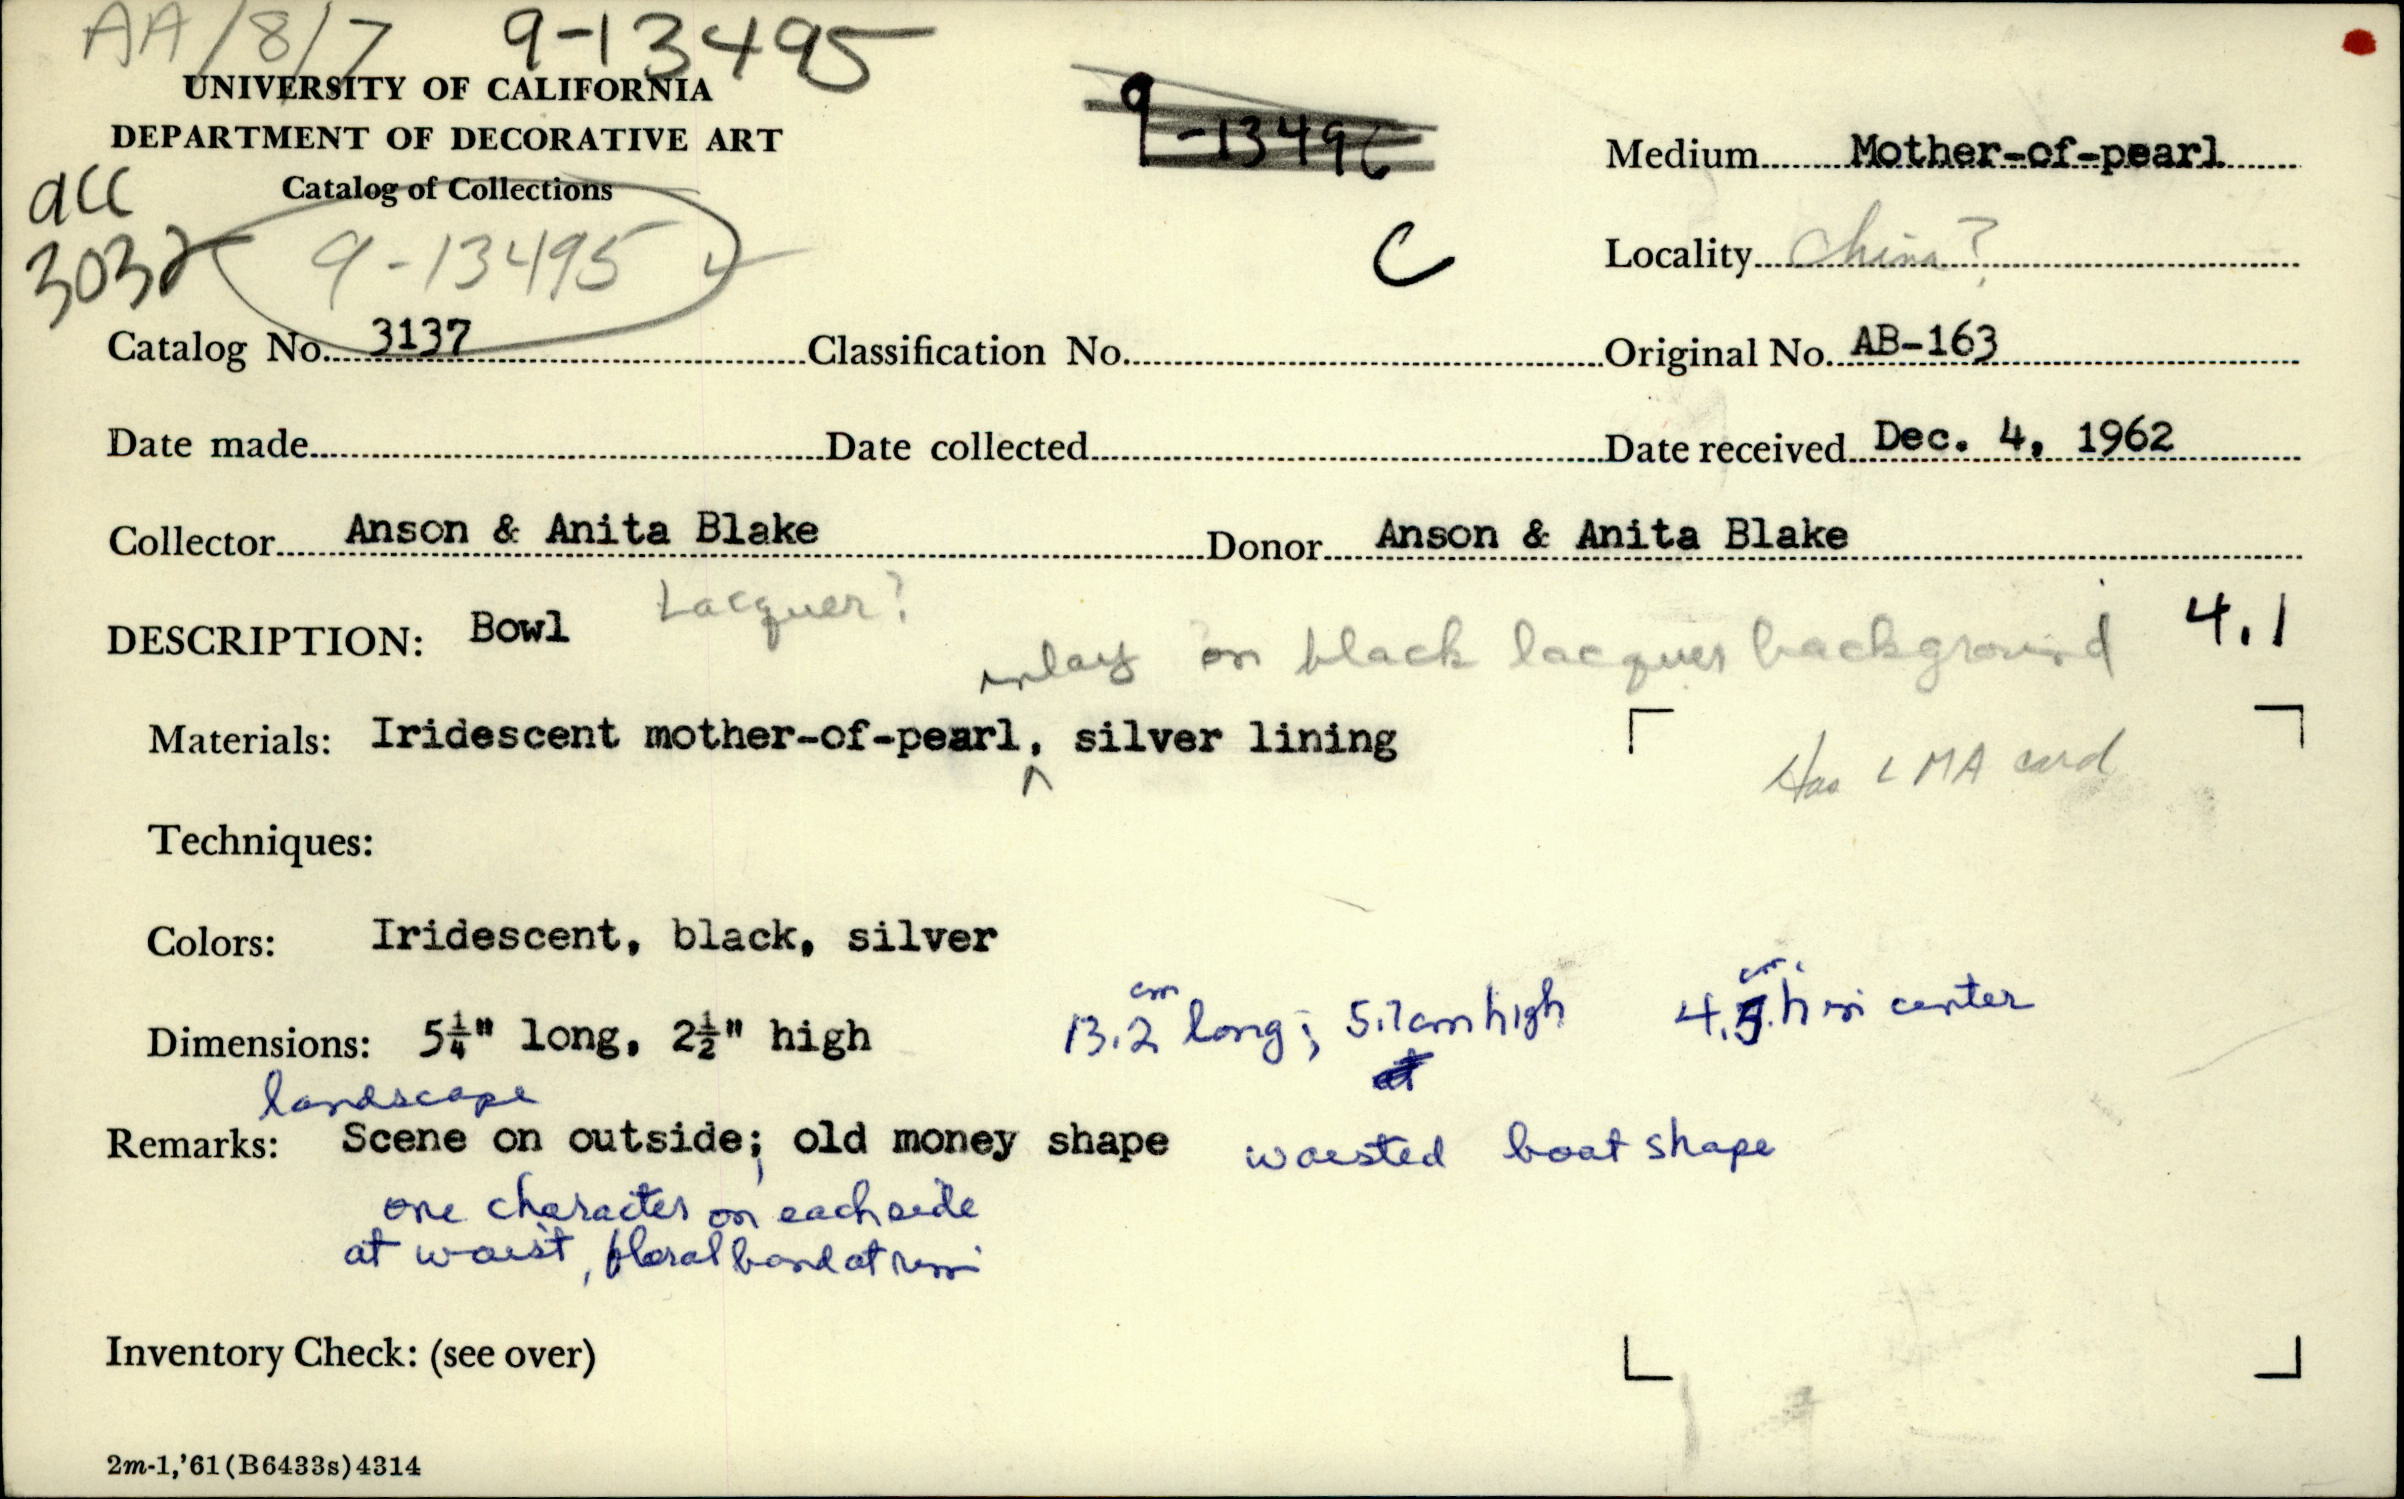 AA/8/7 9-13495
UNIVERSITY OF CALIFORNIA
DEPARTMENT OF DECORATIVE ART
Catalog of Collections
acc
3032
9-13495
9-13496
C
Medium Mother-of-pearl
Locality China?
Catalog No. 3137 Classification No. Original No. AB-163
Date made Date collected Date received Dec. 4, 1962
Collector Anson & Anita Blake Donor Anson & Anita Blake
DESCRIPTION: Bowl Lacquer? 4.1
inlay on black lacquer background
Materials: Iridescent mother-of-pearl, silver lining
Has LMA card
Techniques:
Colors: Iridescent, black, silver
Dimensions: 5¼" long, 2½" high 13.2 cm long; 5.7 cm high 4.5 cm. h in center
landscape
Remarks: Scene on outside; old money shape waisted boat shape
one character on each side
at waist, floral band at rim
Inventory Check: (see over)
2m-1,'61(B6433s)4314